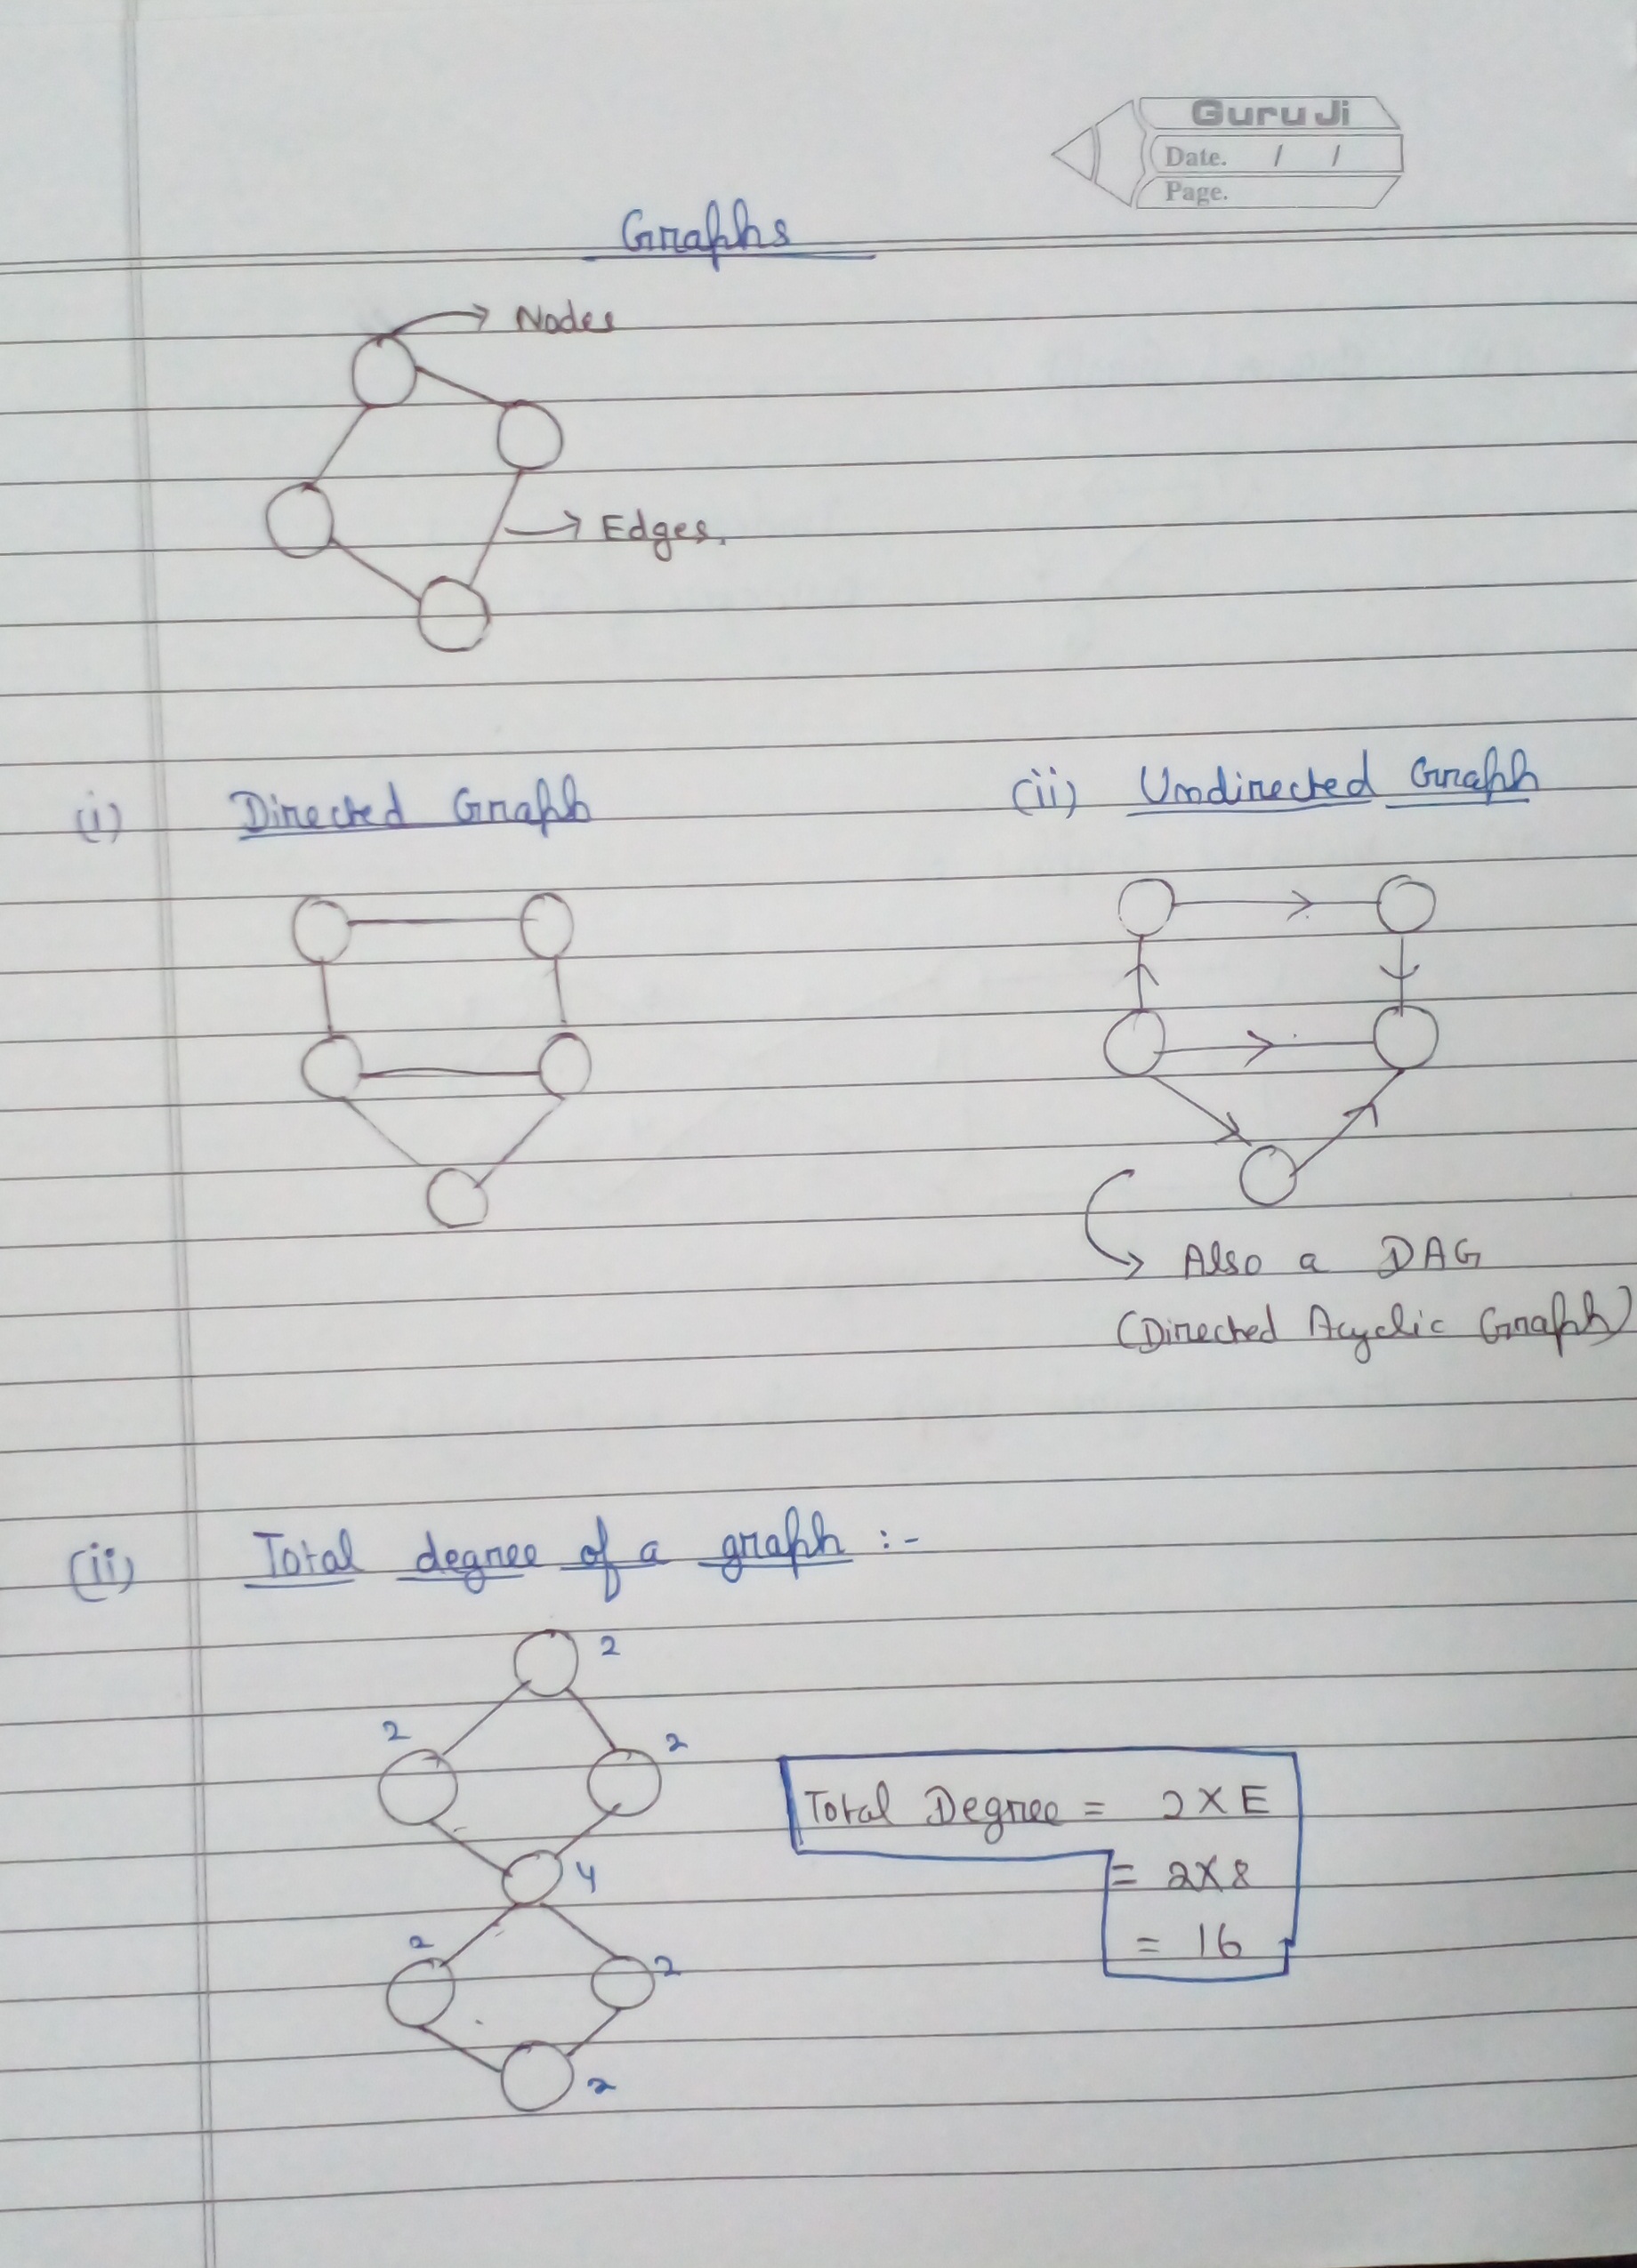 Guru Ji
Date. / /
Page.
Graphs
Nodes
Edges.
(i) Directed Graph
(ii) Undirected Graph
Also a DAG
(Directed Acyclic Graph)
(ii) Total degree of a graph :-
2
2 2
Total Degree = 2 X E
4
= 2X8
2 2
= 16
2